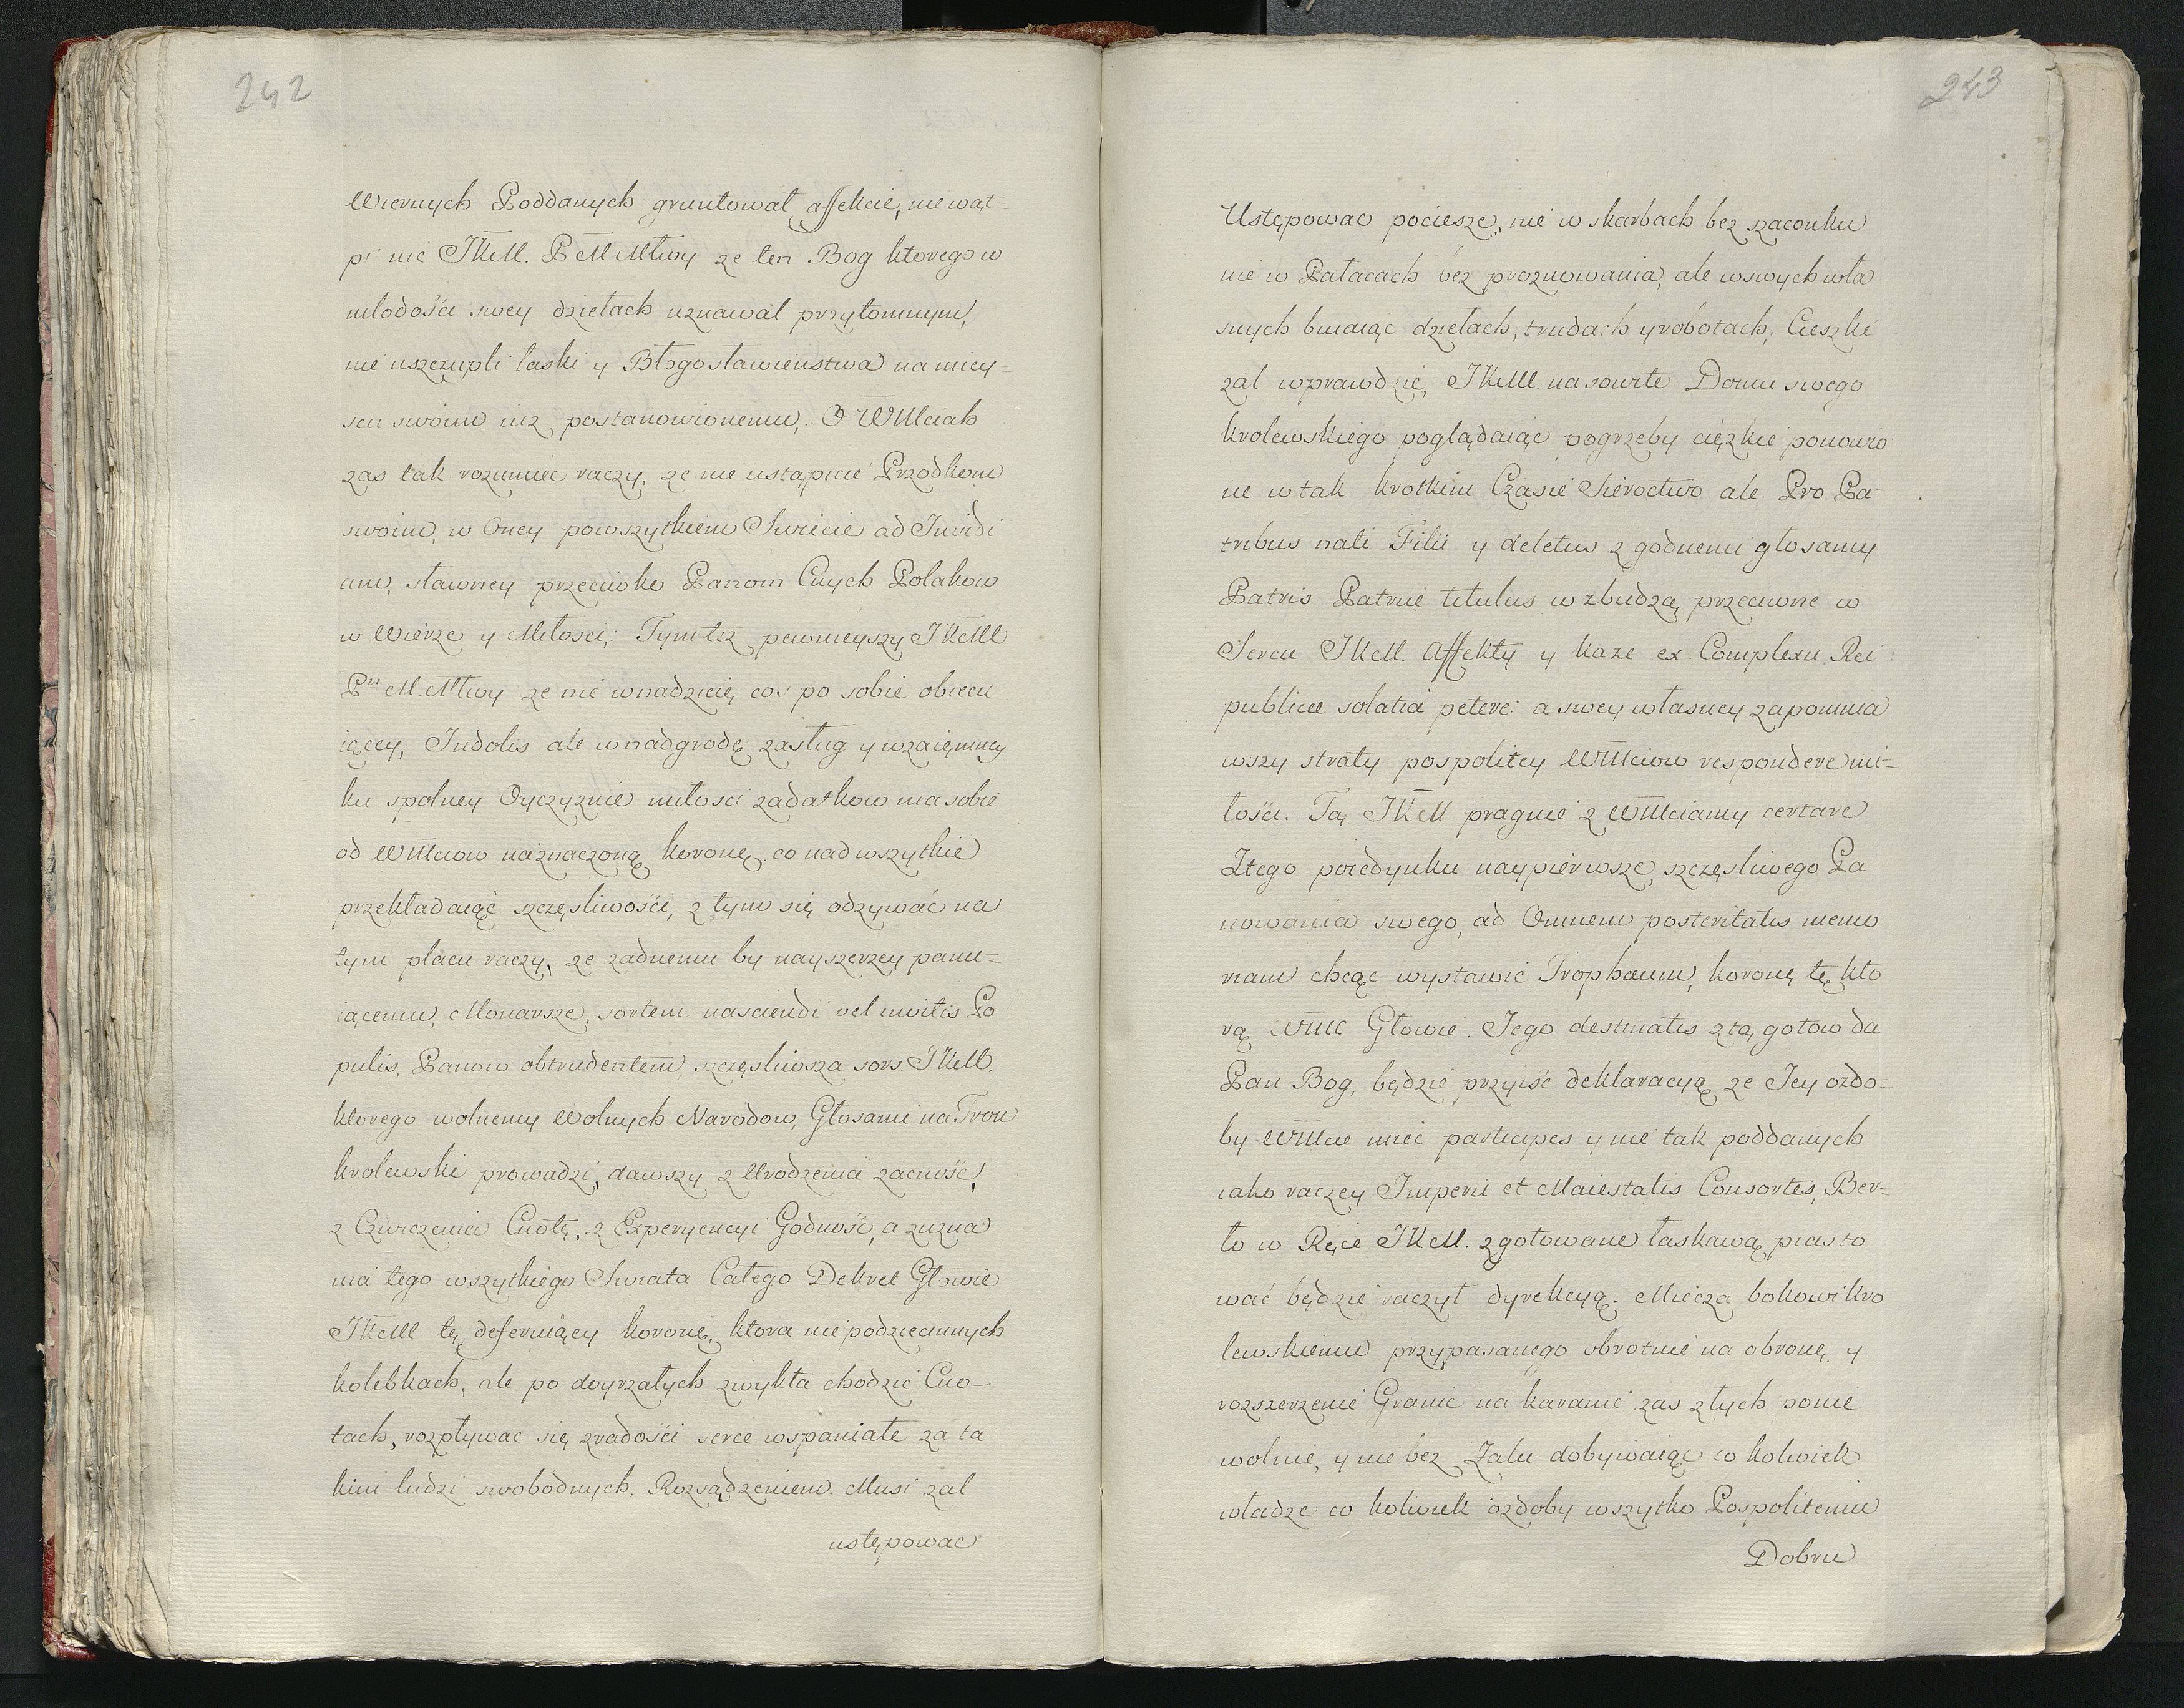 242
Wiernych Poddanych gruntował affekcie, nie wąt-
pi nic JKM. P M Mtwy ze ten Bog ktorego w
młodości swey dziełach uznawał przytomnym,
nie uszczupli łaski y Błogosławienstwa na miey-
scu swoim iuz postanowionemu, O WMciach
zas tak rozumiec raczy, ze nie ustąpicie Przodkom
swoim, w Oney powszytkiem Swiecie ad Invidi
am, sławney przeciwko Panom Cnych Polakow
w Wierze y Miłosci, Tymtez pewnieyszy JKM
Pn M. Mtwy ze nie wnadzieię cos po sobie obiecu
iącey, Indolis ale wnadgrodę zasług y wzaięmney
ku spolney Oyczyznie miłosci zadatkow ma sobie
od WMciow naznaczoną koronę. co nad wszytkie
przekładaiąc szczęsliwości, z tym się odzywać na
tym placu raczy, ze zadnemu by nayszerzey panu-
iącemu, Monarsze, sortem nasciendi vel invitis Po
pulis, Panow obtrudentem, szczęsliwsza sors. JKM.
ktorego wolnemy Wolnych Narodow, Głosami na Tron
krolewski prowadzi, dawszy z Urodzenia zacność,
z Cwiczenia Cnotę, z Experyencyi Godność, a zuzna
nia tego wszytkiego Swiata Całego Dekret Głowie
JKM tę deferuiący koronę, ktora nie podziecinnych
kolebkach, ale po doyrzałych zwykła chodzic Cno-
tach, rozpływac się zradości serce wspaniałe za ta
kim ludzi swobodnych, Rozsądzeniem. Musi zal
ustępowac
243
Ustępowac pociesze, nie w skarbach bez szacunku
nie w Pałacach bez proznowania, ale wswych wła
snych buiaiąc dziełach, trudach y robotach, Cieszki
zal wprawdzie, JKM na sowite Domu swego
krolewskiego poglądaiąc pogrzeby ciężkie ponowio
ne w tak krotkim Czasie Sieroctwo ale. Pro Pa
tribus nati Filii y deletus z godnemi głosamy
Patris Patrie titulus wzbudzą przeciwne w
Sercu JKM. Affekty y kaze ex. Complexu Rei
publice solatia petere: a swey własney zapomnia
wszy straty pospolitey WMciow respondere mi-
łości. Tą JKM pragnie z WMciamy certare
Ztego poiedynku naypierwsze, szczęsliwego Pa
nowania swego, ad Omnem posteritatis memo
riam chcąc wystawic Trophaeum, koronę tę kto
rą WMc Głowie. Jego destinatis z tą gotow da
Pan Bog, będzie przyiśc deklaracyą ze Jey ozdo-
by WMcie miec participes y nie tak poddanych
iako raczey Imperii et Maiestatis Consortes, Ber-
ło w Ręce JKM. zgotowane łaskawą piasto
wać będzie raczył dyrekcyą. Miecza bokowi kro
lewskiemu przypasanego obrotnie na obronę y
rozszerzenie Granic na karanie zas złych ponie
wolnie, y nie bez Zalu dobywaiąc co kolwiek
władze co kolwiek ozdoby wszytko Pospolitemu
Dobru